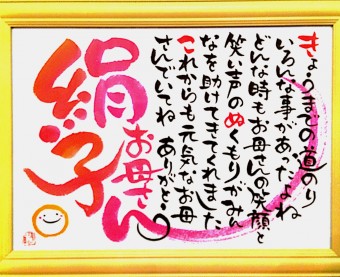 きょうまでの道のり
いろんな事があったよね
どんな時もお母さんの笑顔と
笑い声のぬくもりがみん
なを助けてきてくれました
これからも元気なお母
さんでいてね ありがとう
お母さん
絹子